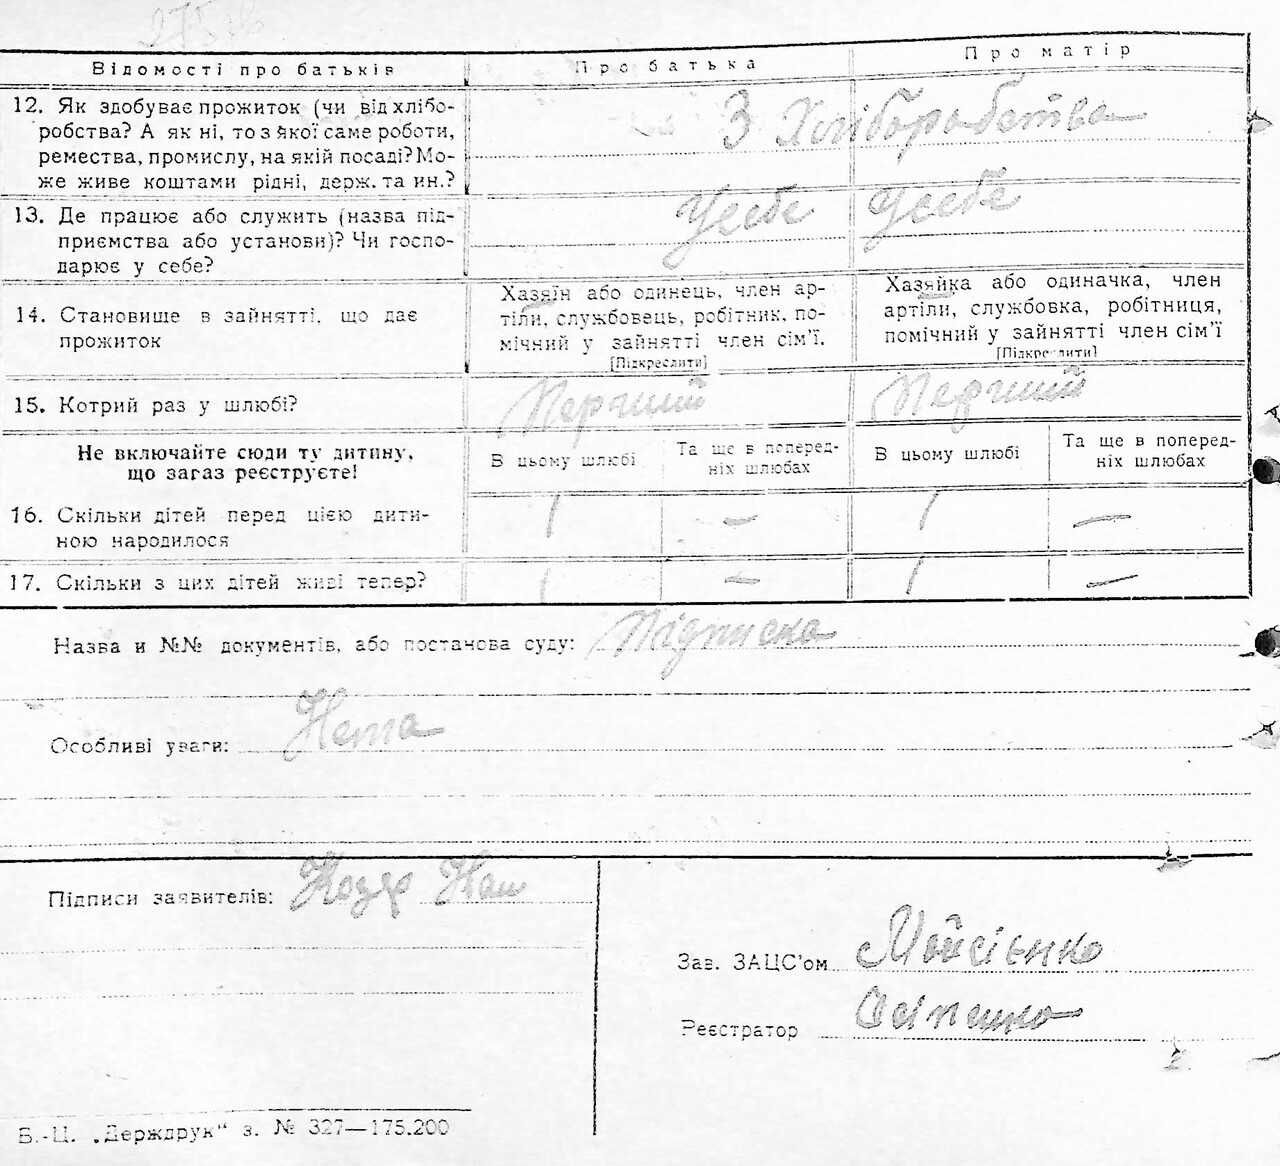 275 зв
Відомості про батьків Про батька Про матір
12. Як здобуває прожиток (чи від хлібо-
робства? А як ні, то з якої саме роботи,
ремества, промислу, на якій посаді? Мо-
же живе коштами рідні, держ. та ин.?
З Хліборобства
13. Де працює або служить (назва під-
приємства або установи)? Чи госпо-
дарює у себе?
Усебе Усебе
14. Становище в зайнятті, що дає
прожиток
Хазяїн або одинець, член ар-
тіли, службовець, робітник, по-
мічний у зайнятті член сім'ї.
[Підкреслити]
Хазяйка або одиначка, член
артіли, службовка, робітниця,
помічний у зайнятті член сім'ї
[Підкреслити]
15. Котрий раз у шлюбі? Перший Перший
Не включайте сюди ту дитину,
що загаз реєструєте!
В цьому шлюбі
Та ще в поперед-
ніх шлюбах
В цьому шлюбі
Та ще в поперед-
ніх шлюбах
16. Скільки дітей перед цією дити-
ною народилося
1 — 1 —
17. Скільки з цих дітей живі тепер? 1 — 1 —
Назва и №№ документів, або постанова суду: Підписка
Особливі уваги: Нема
Підписи заявителів:
Зав. ЗАЦС'ом Мойсієнко
Реєстратор
Б.-Ц. „Держдрук" з. № 327—175.200